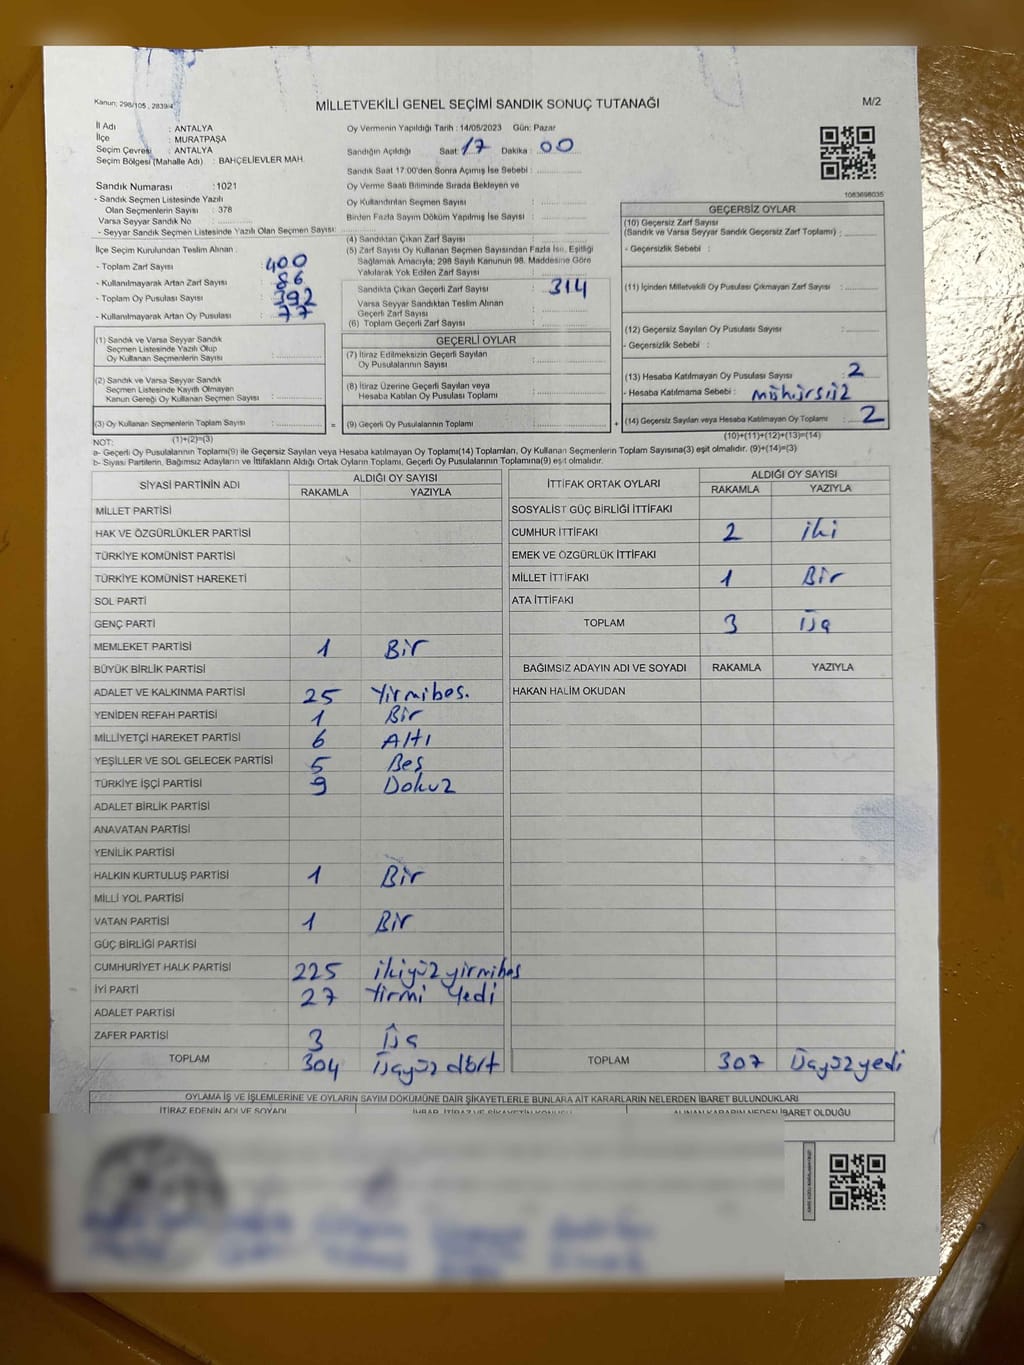 Kanun: 298/105 , 2839/4
MİLLETVEKİLİ GENEL SEÇİMİ SANDIK SONUÇ TUTANAĞI
M/2
İl Adı : ANTALYA
İlçe : MURATPAŞA
Seçim Çevresi : ANTALYA
Seçim Bölgesi (Mahalle Adı) : BAHÇELİEVLER MAH.
Oy Vermenin Yapıldığı Tarih : 14/05/2023 Gün: Pazar
Sandığın Açıldığı Saat: 17 Dakika : 00
Sandık Saat 17:00'den Sonra Açımış İse Sebebi :
Oy Verme Saati Bitiminde Sırada Bekleyen ve
Oy Kullandırılan Seçmen Sayısı :
Birden Fazla Sayım Döküm Yapılmış İse Sayısı :
1083698035
Sandık Numarası : 1021
- Sandık Seçmen Listesinde Yazılı
Olan Seçmenlerin Sayısı : 378
Varsa Seyyar Sandık No :
- Seyyar Sandık Seçmen Listesinde Yazılı Olan Seçmen Sayısı:
İlçe Seçim Kurulundan Teslim Alınan :
- Toplam Zarf Sayısı : 400
- Kullanılmayarak Artan Zarf Sayısı : 86
- Toplam Oy Pusulası Sayısı : 392
- Kullanılmayarak Artan Oy Pusulası : 77
(1) Sandık ve Varsa Seyyar Sandık
Seçmen Listesinde Yazılı Olup
Oy Kullanan Seçmenlerin Sayısı :
(2) Sandık ve Varsa Seyyar Sandık
Seçmen Listesinde Kayıtlı Olmayan
Kanun Gereği Oy Kullanan Seçmen Sayısı :
(3) Oy Kullanan Seçmenlerin Toplam Sayısı :
(1)+(2)=(3)
(4) Sandıktan Çıkan Zarf Sayısı :
(5) Zarf Sayısı Oy Kullanan Seçmen Sayısından Fazla İse, Eşitliği
Sağlamak Amacıyla; 298 Sayılı Kanunun 98. Maddesine Göre
Yakılarak Yok Edilen Zarf Sayısı :
Sandıkta Çıkan Geçerli Zarf Sayısı : 314
Varsa Seyyar Sandıktan Teslim Alınan
Geçerli Zarf Sayısı :
(6) Toplam Geçerli Zarf Sayısı :
GEÇERLİ OYLAR
(7) İtiraz Edilmeksizin Geçerli Sayılan
Oy Pusulalarının Sayısı :
(8) İtiraz Üzerine Geçerli Sayılan veya
Hesaba Katılan Oy Pusulası Toplamı :
= (9) Geçerli Oy Pusulalarının Toplamı : +
GEÇERSİZ OYLAR
(10) Geçersiz Zarf Sayısı
(Sandık ve Varsa Seyyar Sandık Geçersiz Zarf Toplamı) :
- Geçersizlik Sebebi :
(11) İçinden Milletvekili Oy Pusulası Çıkmayan Zarf Sayısı :
(12) Geçersiz Sayılan Oy Pusulası Sayısı :
- Geçersizlik Sebebi :
(13) Hesaba Katılmayan Oy Pusulası Sayısı : 2
- Hesaba Katılmama Sebebi : mühürsüz
(14) Geçersiz Sayılan veya Hesaba Katılmayan Oy Toplamı : 2
(10)+(11)+(12)+(13)=(14)
NOT:
a- Geçerli Oy Pusulalarının Toplamı(9) ile Geçersiz Sayılan veya Hesaba katılmayan Oy Toplamı(14) Toplamları, Oy Kullanan Seçmenlerin Toplam Sayısına(3) eşit olmalıdır. (9)+(14)=(3)
b- Siyasi Partilerin, Bağımsız Adayların ve İttifakların Aldığı Ortak Oyların Toplamı, Geçerli Oy Pusulalarının Toplamına(9) eşit olmalıdır.
SİYASİ PARTİNİN ADI ALDIĞI OY SAYISI
RAKAMLA YAZIYLA
MİLLET PARTİSİ
HAK VE ÖZGÜRLÜKLER PARTİSİ
TÜRKİYE KOMÜNİST PARTİSİ
TÜRKİYE KOMÜNİST HAREKETİ
SOL PARTİ
GENÇ PARTİ
MEMLEKET PARTİSİ 1 Bir
BÜYÜK BİRLİK PARTİSİ
ADALET VE KALKINMA PARTİSİ 25 Yirmibeş.
YENİDEN REFAH PARTİSİ 1 Bir
MİLLİYETÇİ HAREKET PARTİSİ 6 Altı
YEŞİLLER VE SOL GELECEK PARTİSİ 5 Beş
TÜRKİYE İŞÇİ PARTİSİ 9 Dokuz
ADALET BİRLİK PARTİSİ
ANAVATAN PARTİSİ
YENİLİK PARTİSİ
HALKIN KURTULUŞ PARTİSİ 1 Bir
MİLLİ YOL PARTİSİ
VATAN PARTİSİ 1 Bir
GÜÇ BİRLİĞİ PARTİSİ
CUMHURİYET HALK PARTİSİ 225 ikiyüzyirmibeş
İYİ PARTİ 27 Yirmi Yedi
ADALET PARTİSİ
ZAFER PARTİSİ 3 Üç
TOPLAM 304 Üçyüz dört
İTTİFAK ORTAK OYLARI ALDIĞI OY SAYISI
RAKAMLA YAZIYLA
SOSYALİST GÜÇ BİRLİĞİ İTTİFAKI
CUMHUR İTTİFAKI 2 iki
EMEK VE ÖZGÜRLÜK İTTİFAKI
MİLLET İTTİFAKI 1 Bir
ATA İTTİFAKI
TOPLAM 3 Üç
BAĞIMSIZ ADAYIN ADI VE SOYADI RAKAMLA YAZIYLA
HAKAN HALİM OKUDAN
TOPLAM 307 Üçyüzyedi
OYLAMA İŞ VE İŞLEMLERİNE VE OYLARIN SAYIM DÖKÜMÜNE DAİR ŞİKAYETLERLE BUNLARA AİT KARARLARIN NELERDEN İBARET BULUNDUKLARI
İTİRAZ EDENİN ADI VE SOYADI İHBAR, İTİRAZ VE ŞİKAYETİN KONUSU ALINAN KARARIN NEDEN İBARET OLDUĞU